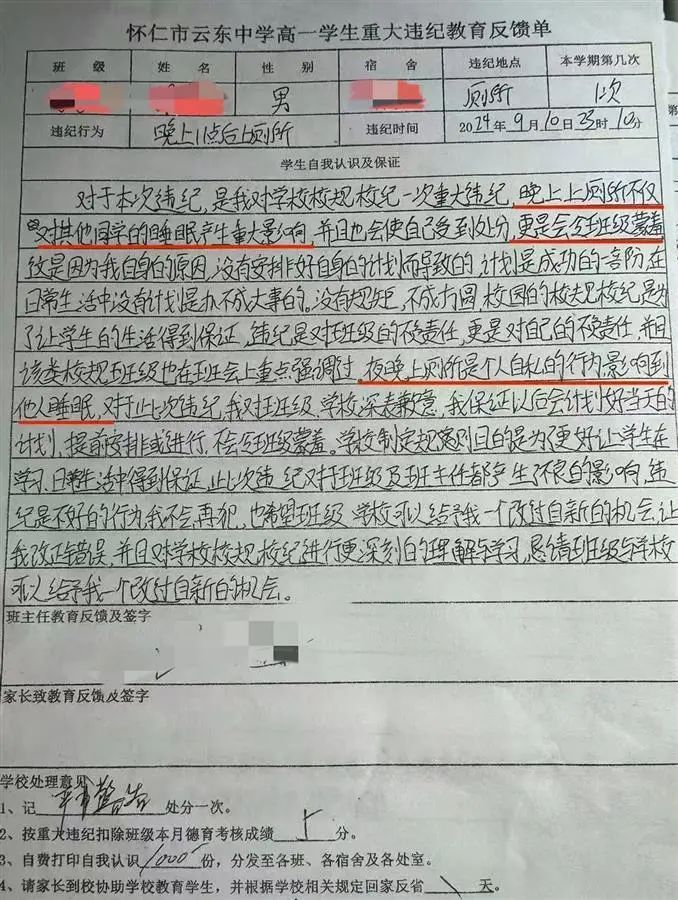 怀仁市云东中学高一学生重大违纪教育反馈单
班 级 姓 名 性 别 宿 舍 违纪地点 本学期第几次
男 厕所 1次
违纪行为 晚上11点后上厕所 违纪时间 2024年9月10日23时10分
学生自我认识及保证
对于本次违纪,是我对学校校规校纪一次重大违纪,晚上上厕所不仅
对其他同学的睡眠产生重大影响,并且也会使自己受到处分,更是会令班级蒙羞
这是因为我自身的原因,没有安排好自身的计划而导致的,计划是成功的一部份,在
日常生活中没有计划是办不成大事的。没有规矩,不成方圆,校园的校规校纪是为
了让学生的生活得到保证,违纪是对班级的不负责任,更是对自己的不负责任,并且
该类校规班级也在班会上重点强调过,夜晚上厕所是个人自私的行为,影响到
他人睡眠,对于此次违纪,我对班级、学校深表歉意,我保证以后会计划好当天的
计划,提前安排或进行,不会令班级蒙羞。学校制定规章则目的是为了更好让学生在
学习、日常生活中得到保证,此次违纪对于班级及班主任都产生了不良的影响,违
纪是不好的行为我不会再犯,也希望班级、学校可以给予我一个改过自新的机会,让
我改正错误,并且对学校校规校纪进行更深刻的理解与学习,恳请班级与学校
可以给予我一个改过自新的机会。
班主任教育反馈及签字
家长致教育反馈及签字
学校处理意见
1、记 严重警告 处分一次。
2、按重大违纪扣除班级本月德育考核成绩 分。
3、自费打印自我认识 1000 份,分发至各班、各宿舍及各处室。
4、请家长到校协助学校教育学生,并根据学校相关规定回家反省 \ 天。